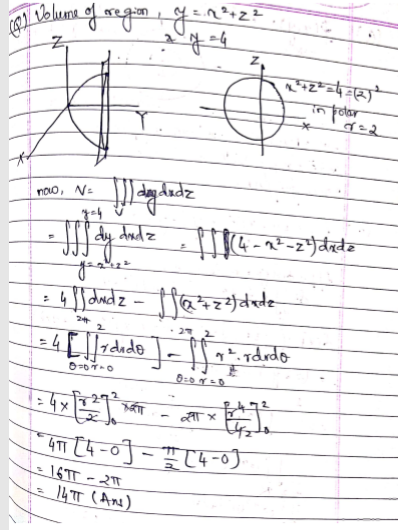 (Q) Volume of region, y = x² + z²
& y = 4
Z
Y
X
Z
x² + z² = 4 = (2)²
in polar
r = 2
X
now, V = ∭_V dy dx dz
= ∭_{y=x²+z²}^{y=4} dy dx dz = ∬ (4 - x² - z²) dx dz
= 4 ∬ dx dz - ∬ (x² + z²) dx dz
= 4 [∫_{θ=0}^{2π} ∫_{r=0}^{2} r dr dθ] - ∫_{θ=0}^{2π} ∫_{r=0}^{2} r² · r dr dθ
= 4 × [r²/2]₀² × 2π - 2π × [r⁴/4₂]₀²
= 4π [4 - 0] - π/2 [4 - 0]
= 16π - 2π
= 14π (Ans)